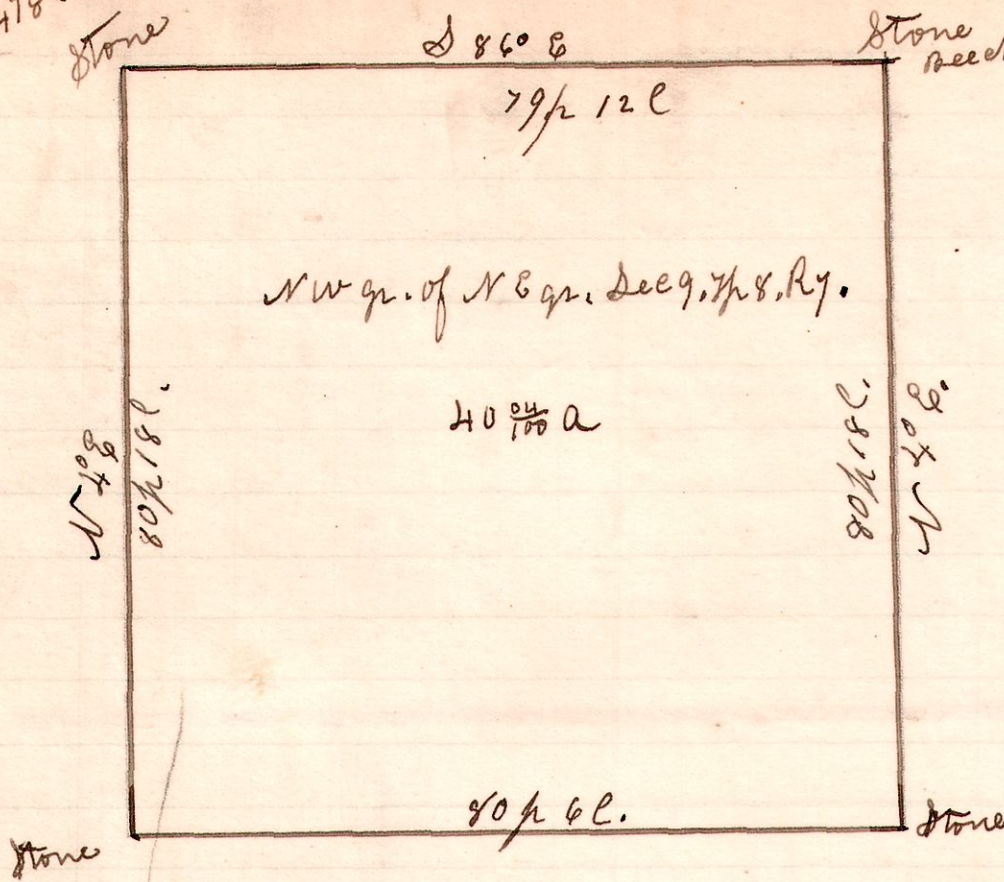 478
Stone
S 86° E
Stone
Beech
79p 12 l
NW qr. of N E qr. Sec 9. Tp 8. R 7.
40 04/100 a
N 4° E
80p 18 l.
80p 18 l.
N 4° E
80 p 6 l.
Stone
Stone